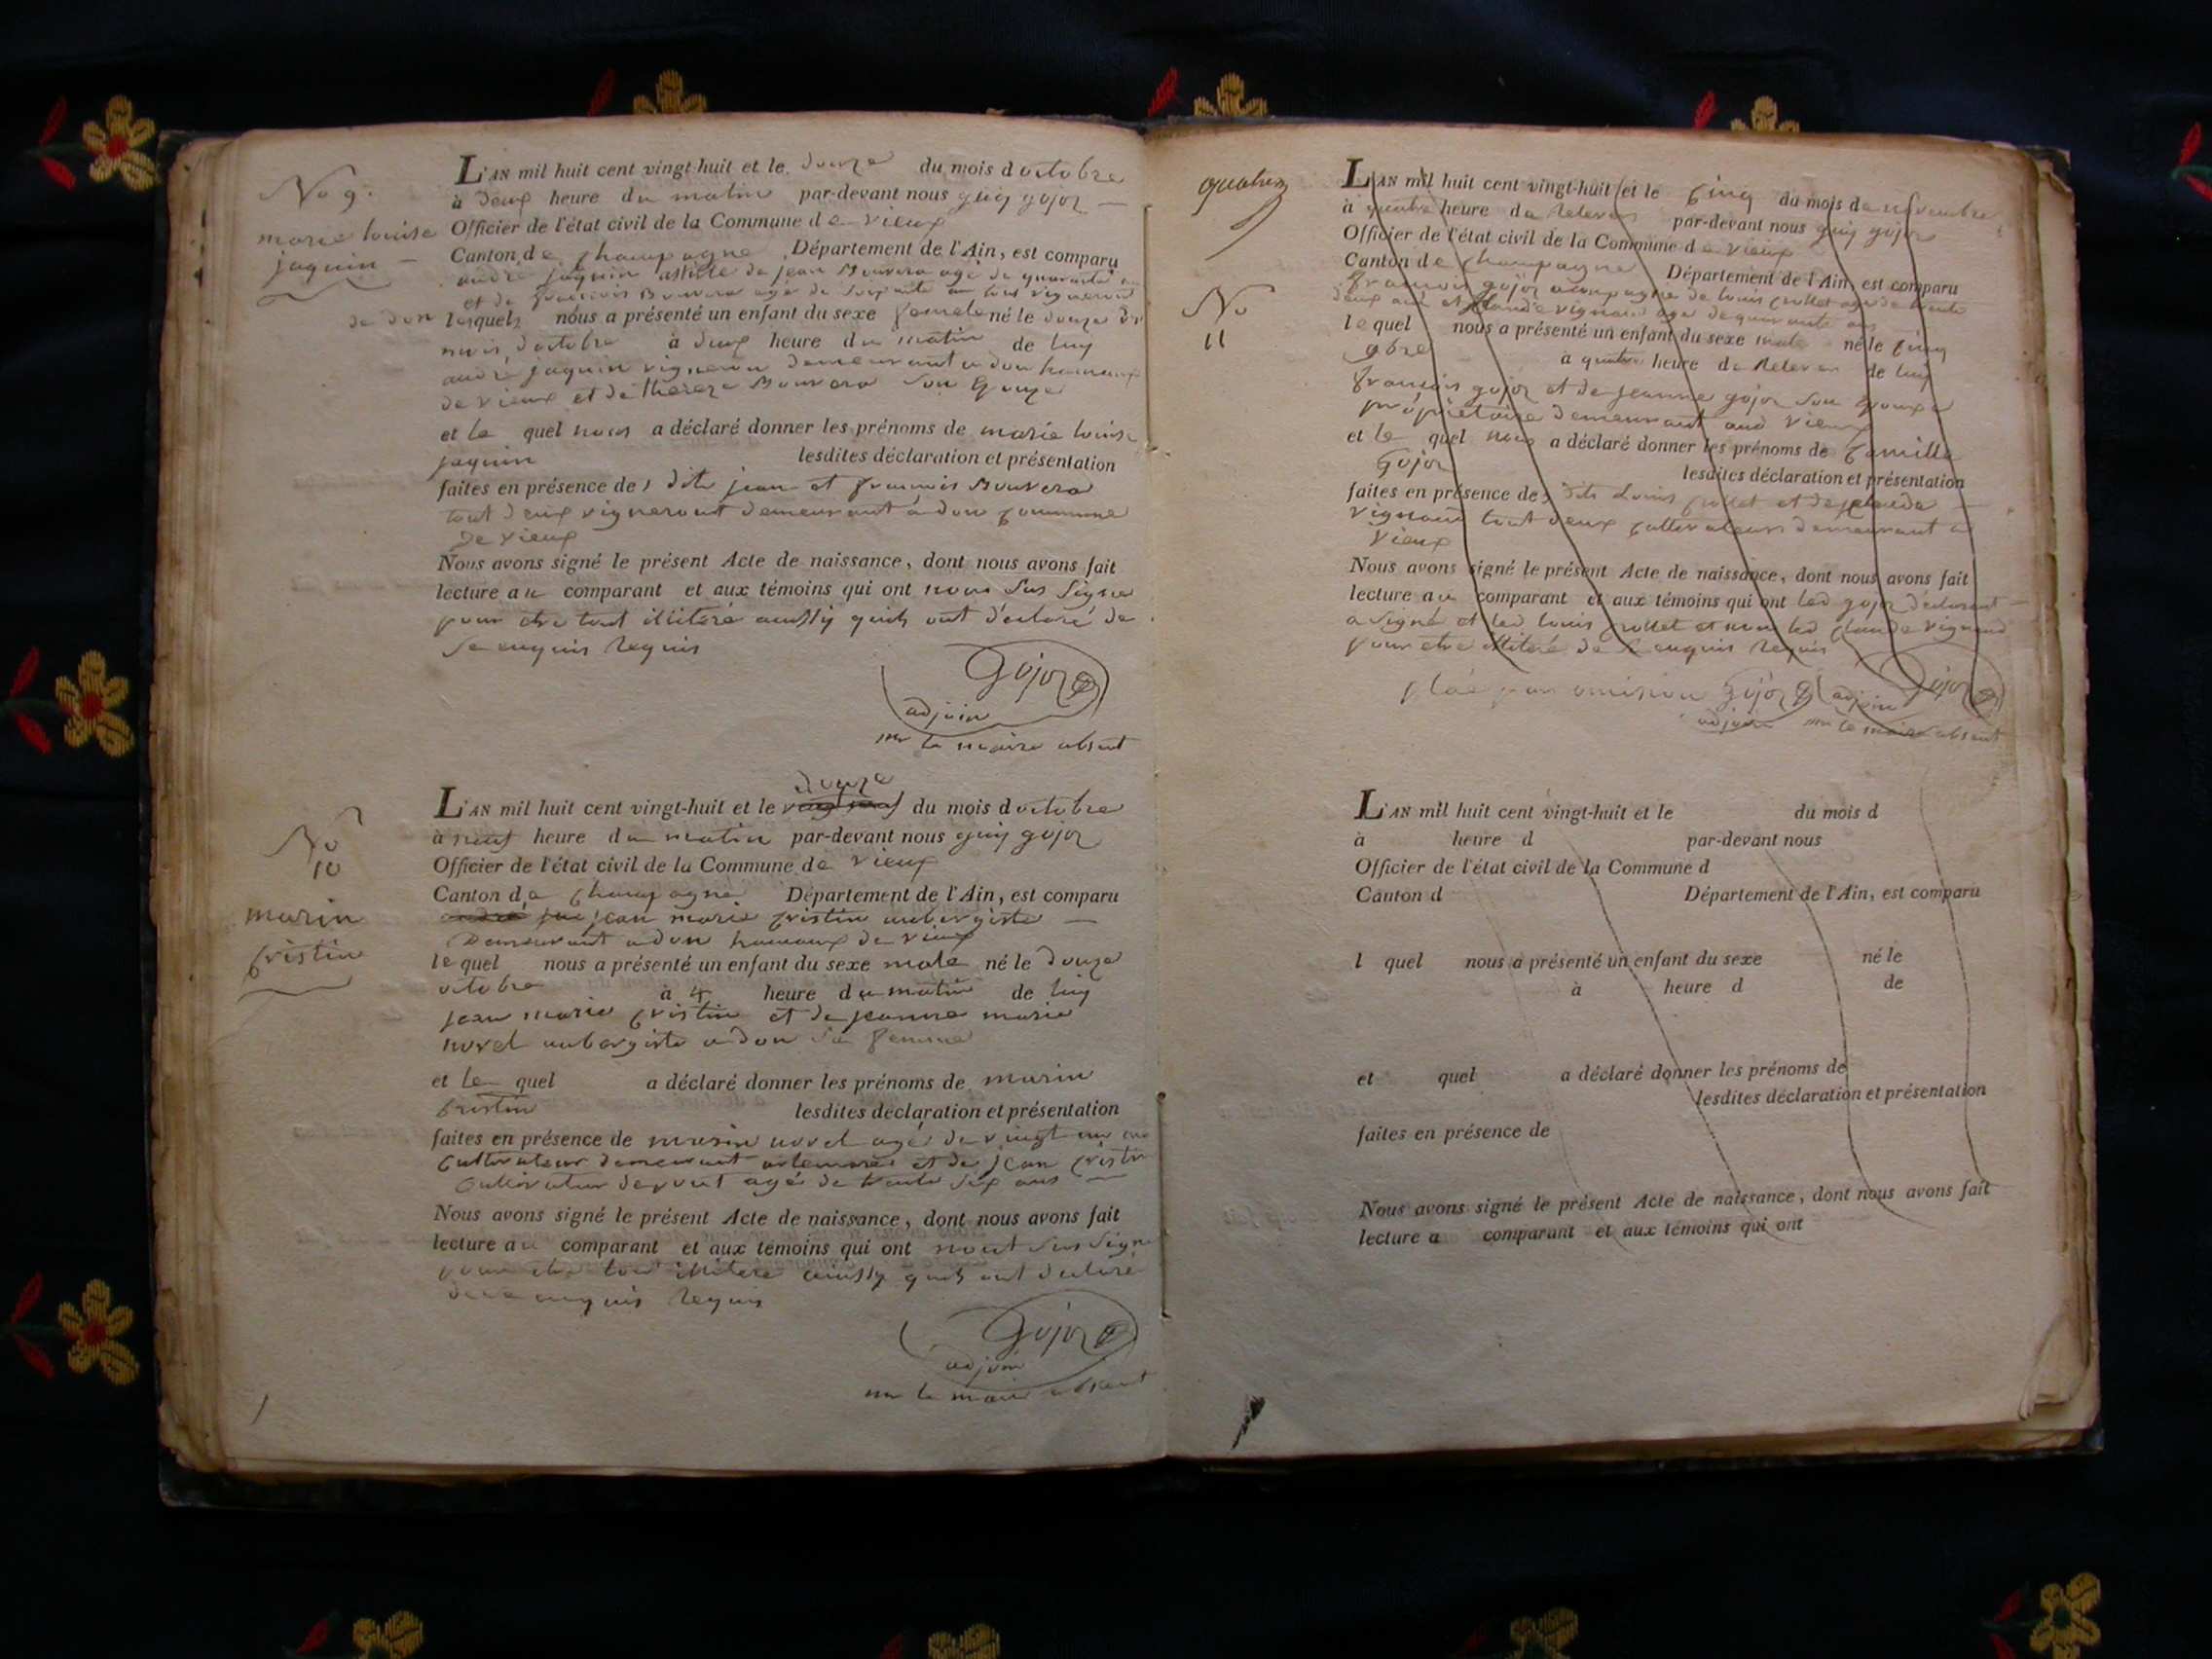 No 9.
marie louise
jaquin
L'AN mil huit cent vingt-huit et le douze du mois d octobre
à deux heure du matin par-devant nous guy gojoz
Officier de l'état civil de la Commune de vieux
Canton de champagne Département de l'Ain, est comparu
andré jaquin assisté de jean Bouvera agé de quarante
et de francois Bouvera agé de soixante tous vignerons
de don lesquels nous a présenté un enfant du sexe femele né le douze du
mois doctobre à deux heure du matin de luy
andré jaquin vigneron demeurant a don hameaux
de vieux et de thereze Bouvera son epouze
et le quel nous a déclaré donner les prénoms de marie louise
jaquin lesdites déclaration et présentation
faites en présence des dits jean et francois Bouvera
tout deux vigneront demeurant à don commune
de vieux
Nous avons signé le présent Acte de naissance, dont nous avons fait
lecture au comparant et aux témoins qui ont nom sus signe
pour etre tout illiteré aussy quils ont déclaré de
se enquis requis
Gojoz
adjoin
mr le maire absent
No
10
marin
cristin
douze
L'AN mil huit cent vingt-huit et le vingt neuf du mois d octobre
à neuf heure du matin par-devant nous guy gojoz
Officier de l'état civil de la Commune de vieux
Canton de champagne Département de l'Ain, est comparu
andré jean marie cristin aubergiste
Demeurant a don hameaux de vieux
le quel nous a présenté un enfant du sexe male né le douze
octobre à 4 heure du matin de luy
jean marie cristin et de jeanne marie
novel aubergiste a don sa femme
et le quel a déclaré donner les prénoms de marin
cristin lesdites déclaration et présentation
faites en présence de marin novel agé de vingt un ans
cultivateur demeurant artemare et de jean cristin
cultivateur agé de trente six ans
Nous avons signé le présent Acte de naissance, dont nous avons fait
lecture au comparant et aux témoins qui ont nout sus signe
pour etre tous illiteré aussy quils ont declaré
de ce enquis requis
Gojoz
adjoin
mr le maire absent
quatre
No
11
L'AN mil huit cent vingt-huit et le cinq du mois de novembre
à quatre heure de relevee par-devant nous guy gojoz
Officier de l'état civil de la Commune de vieux
Canton de champagne Département de l'Ain, est comparu
francois gojoz acompagné de louis crollet agé de trente
deux ans et claude vignand agé de quarante ans
le quel nous a présenté un enfant du sexe male né le cinq
9bre à quatre heure de relevee de luy
francois gojoz et de jeanne gojoz son epouze
propriétaire demeurant aud vieux
et le quel nous a déclaré donner les prénoms de Camille
Gojoz lesdites déclaration et présentation
faites en présence des dits Louis crollet et de claude
vignand tout deux cultivateurs demeurant a
vieux
Nous avons signé le présent Acte de naissance, dont nous avons fait
lecture au comparant et aux témoins qui ont led gojoz déclarant
a signé et led louis crollet et non led claude vignand
pour etre illiteré de ce enquis requis
par omision Gojoz
adjoin
Gojoz
adjoin
mr le maire absent
L'AN mil huit cent vingt-huit et le du mois d
à heure d par-devant nous
Officier de l'état civil de la Commune d
Canton d Département de l'Ain, est comparu
l quel nous a présenté un enfant du sexe né le
à heure d de
et quel a déclaré donner les prénoms de
lesdites déclaration et présentation
faites en présence de
Nous avons signé le présent Acte de naissance, dont nous avons fait
lecture a comparant et aux témoins qui ont